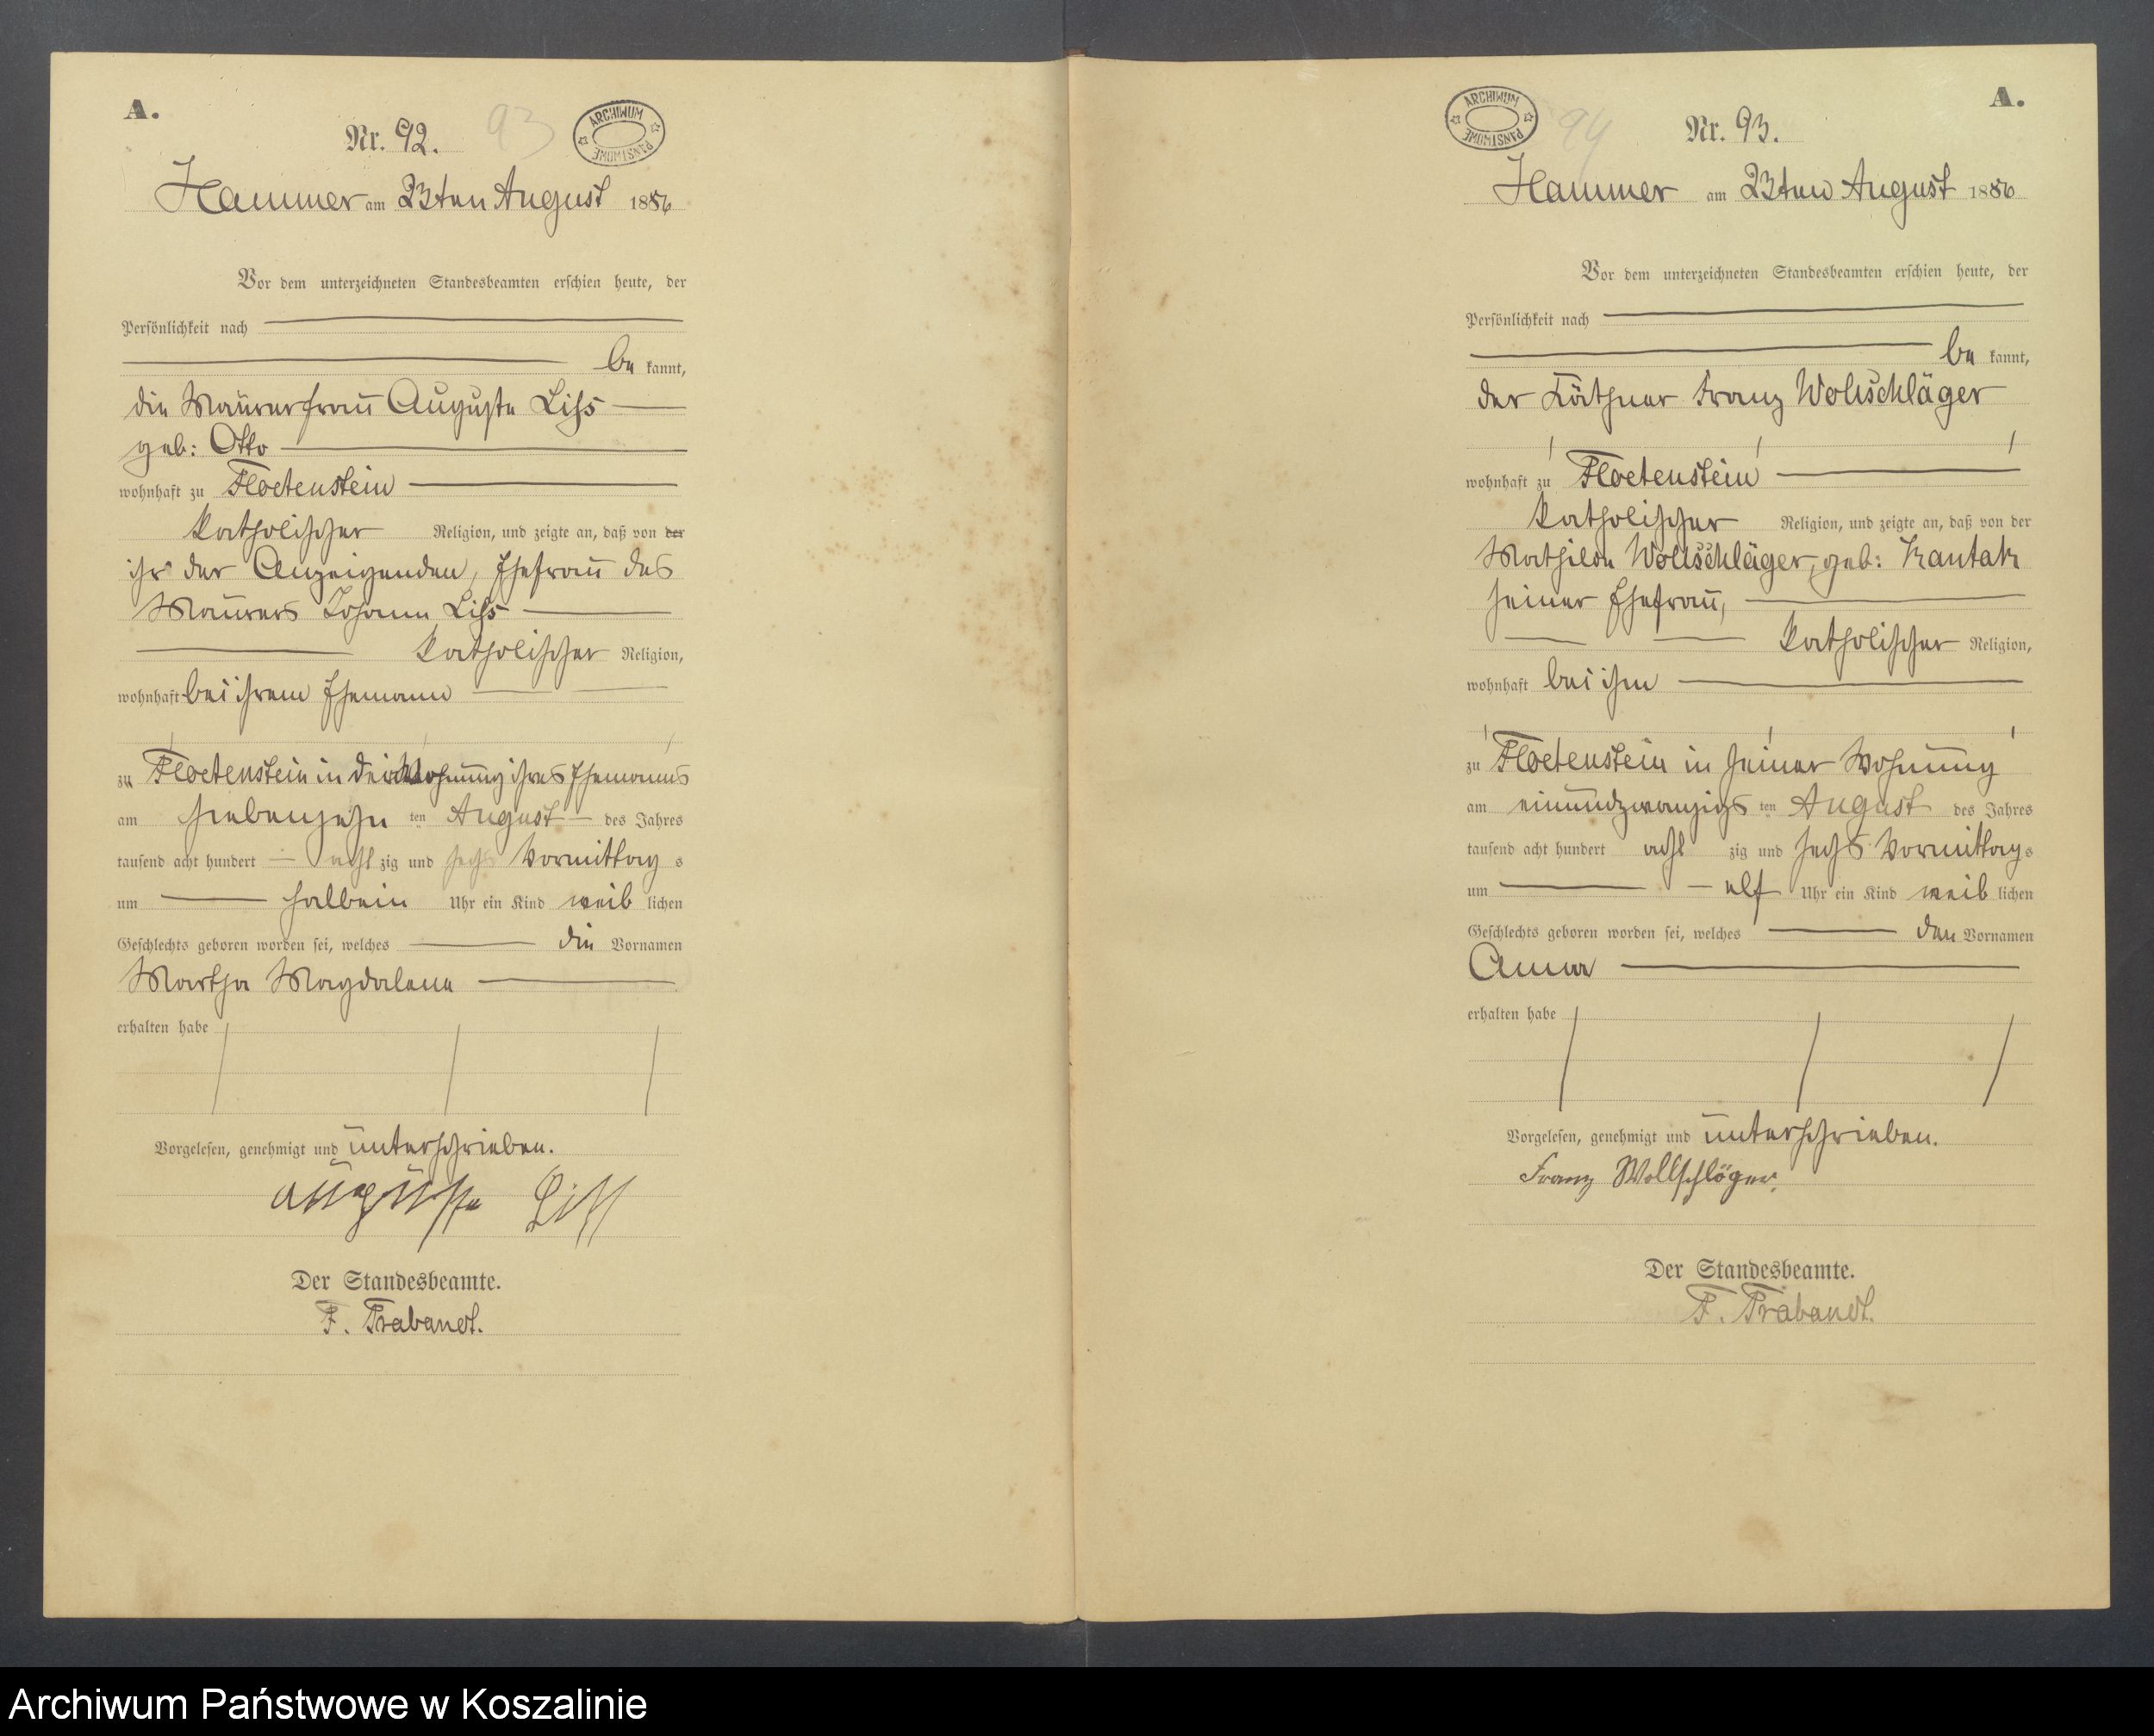 A.
Nr. 92.
93
ARCHIWUM PAŃSTWOWE
Hammer am 23ten August 1886
Vor dem unterzeichneten Standesbeamten erschien heute, der
Persönlichkeit nach
be kannt,
die Maurerfrau Auguste Liss
geb: Otto
wohnhaft zu Floetenstein
katholischer Religion, und zeigte an, daß von der
ihr der Anzeigenden, Ehefrau des
Maurers Johann Liss
katholischer Religion,
wohnhaft bei ihrem Ehemann
zu Floetenstein in der Wohnung ihres Ehemanns
am siebenzehn ten August des Jahres
tausend acht hundert acht zig und sechs Vormittag s
um halbein Uhr ein Kind weib lichen
Geschlechts geboren worden sei, welches die Vornamen
Martha Magdalena
erhalten habe
Vorgelesen, genehmigt und unterschrieben.
Auguste Liss
Der Standesbeamte.
F. Trabandt.
ARCHIWUM PAŃSTWOWE
94
Nr. 93.
A.
Hammer am 23ten August 1886
Vor dem unterzeichneten Standesbeamten erschien heute, der
Persönlichkeit nach
be kannt,
der Käthner Franz Wollschläger
wohnhaft zu Floetenstein
katholischer Religion, und zeigte an, daß von der
Mathilde Wollschläger, geb: Kantak
seiner Ehefrau,
katholischer Religion,
wohnhaft bei ihm
zu Floetenstein in seiner Wohnung
am einundzwanzigs ten August des Jahres
tausend acht hundert acht zig und sechs Vormittag s
um elf Uhr ein Kind weib lichen
Geschlechts geboren worden sei, welches den Vornamen
Anna
erhalten habe
Vorgelesen, genehmigt und unterschrieben.
Franz Wollschläger.
Der Standesbeamte.
F. Trabandt.
Archiwum Państwowe w Koszalinie